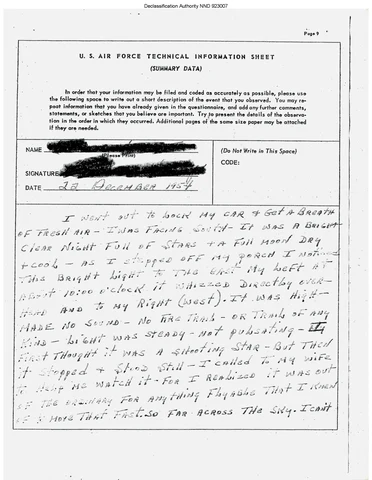 Declassification Authority NND 923007
Page 9
U. S. AIR FORCE TECHNICAL INFORMATION SHEET
(SUMMARY DATA)
In order that your information may be filed and coded as accurately as possible, please use
the following space to write out a short description of the event that you observed. You may re-
peat information that you have already given in the questionnaire, and add any further comments,
statements, or sketches that you believe are important. Try to present the details of the observa-
tion in the order in which they occurred. Additional pages of the same size paper may be attached
if they are needed.
NAME
(Please Print)
SIGNATURE
DATE 28 DECEMBER 195
(Do Not Write in This Space)
CODE:
I went out to lock my car + Get A Breath
OF FRESH AIR - I WAS FACING South - It was A Bright
Clear Night Full of Stars + A Full Moon Dry
+ Cool - As I stepped off my porch I noticed
this Bright Light to the East my Left At
About 10:00 o'clock it whizzed Directly over-
Head AND to my Right (West). It was High -
MADE No Sound - No Fire Trail - or Trail of Any
Kind - Light was steady - not pulsating - I
First Thought it was A shooting Star - But Then
it stopped + Stood Still - I called to My wife
to Help me watch it - For I Realized it was out
of the ordinary For Anything Flyable That I knew
of to Move That Fast. So Far Across The Sky. I Can't